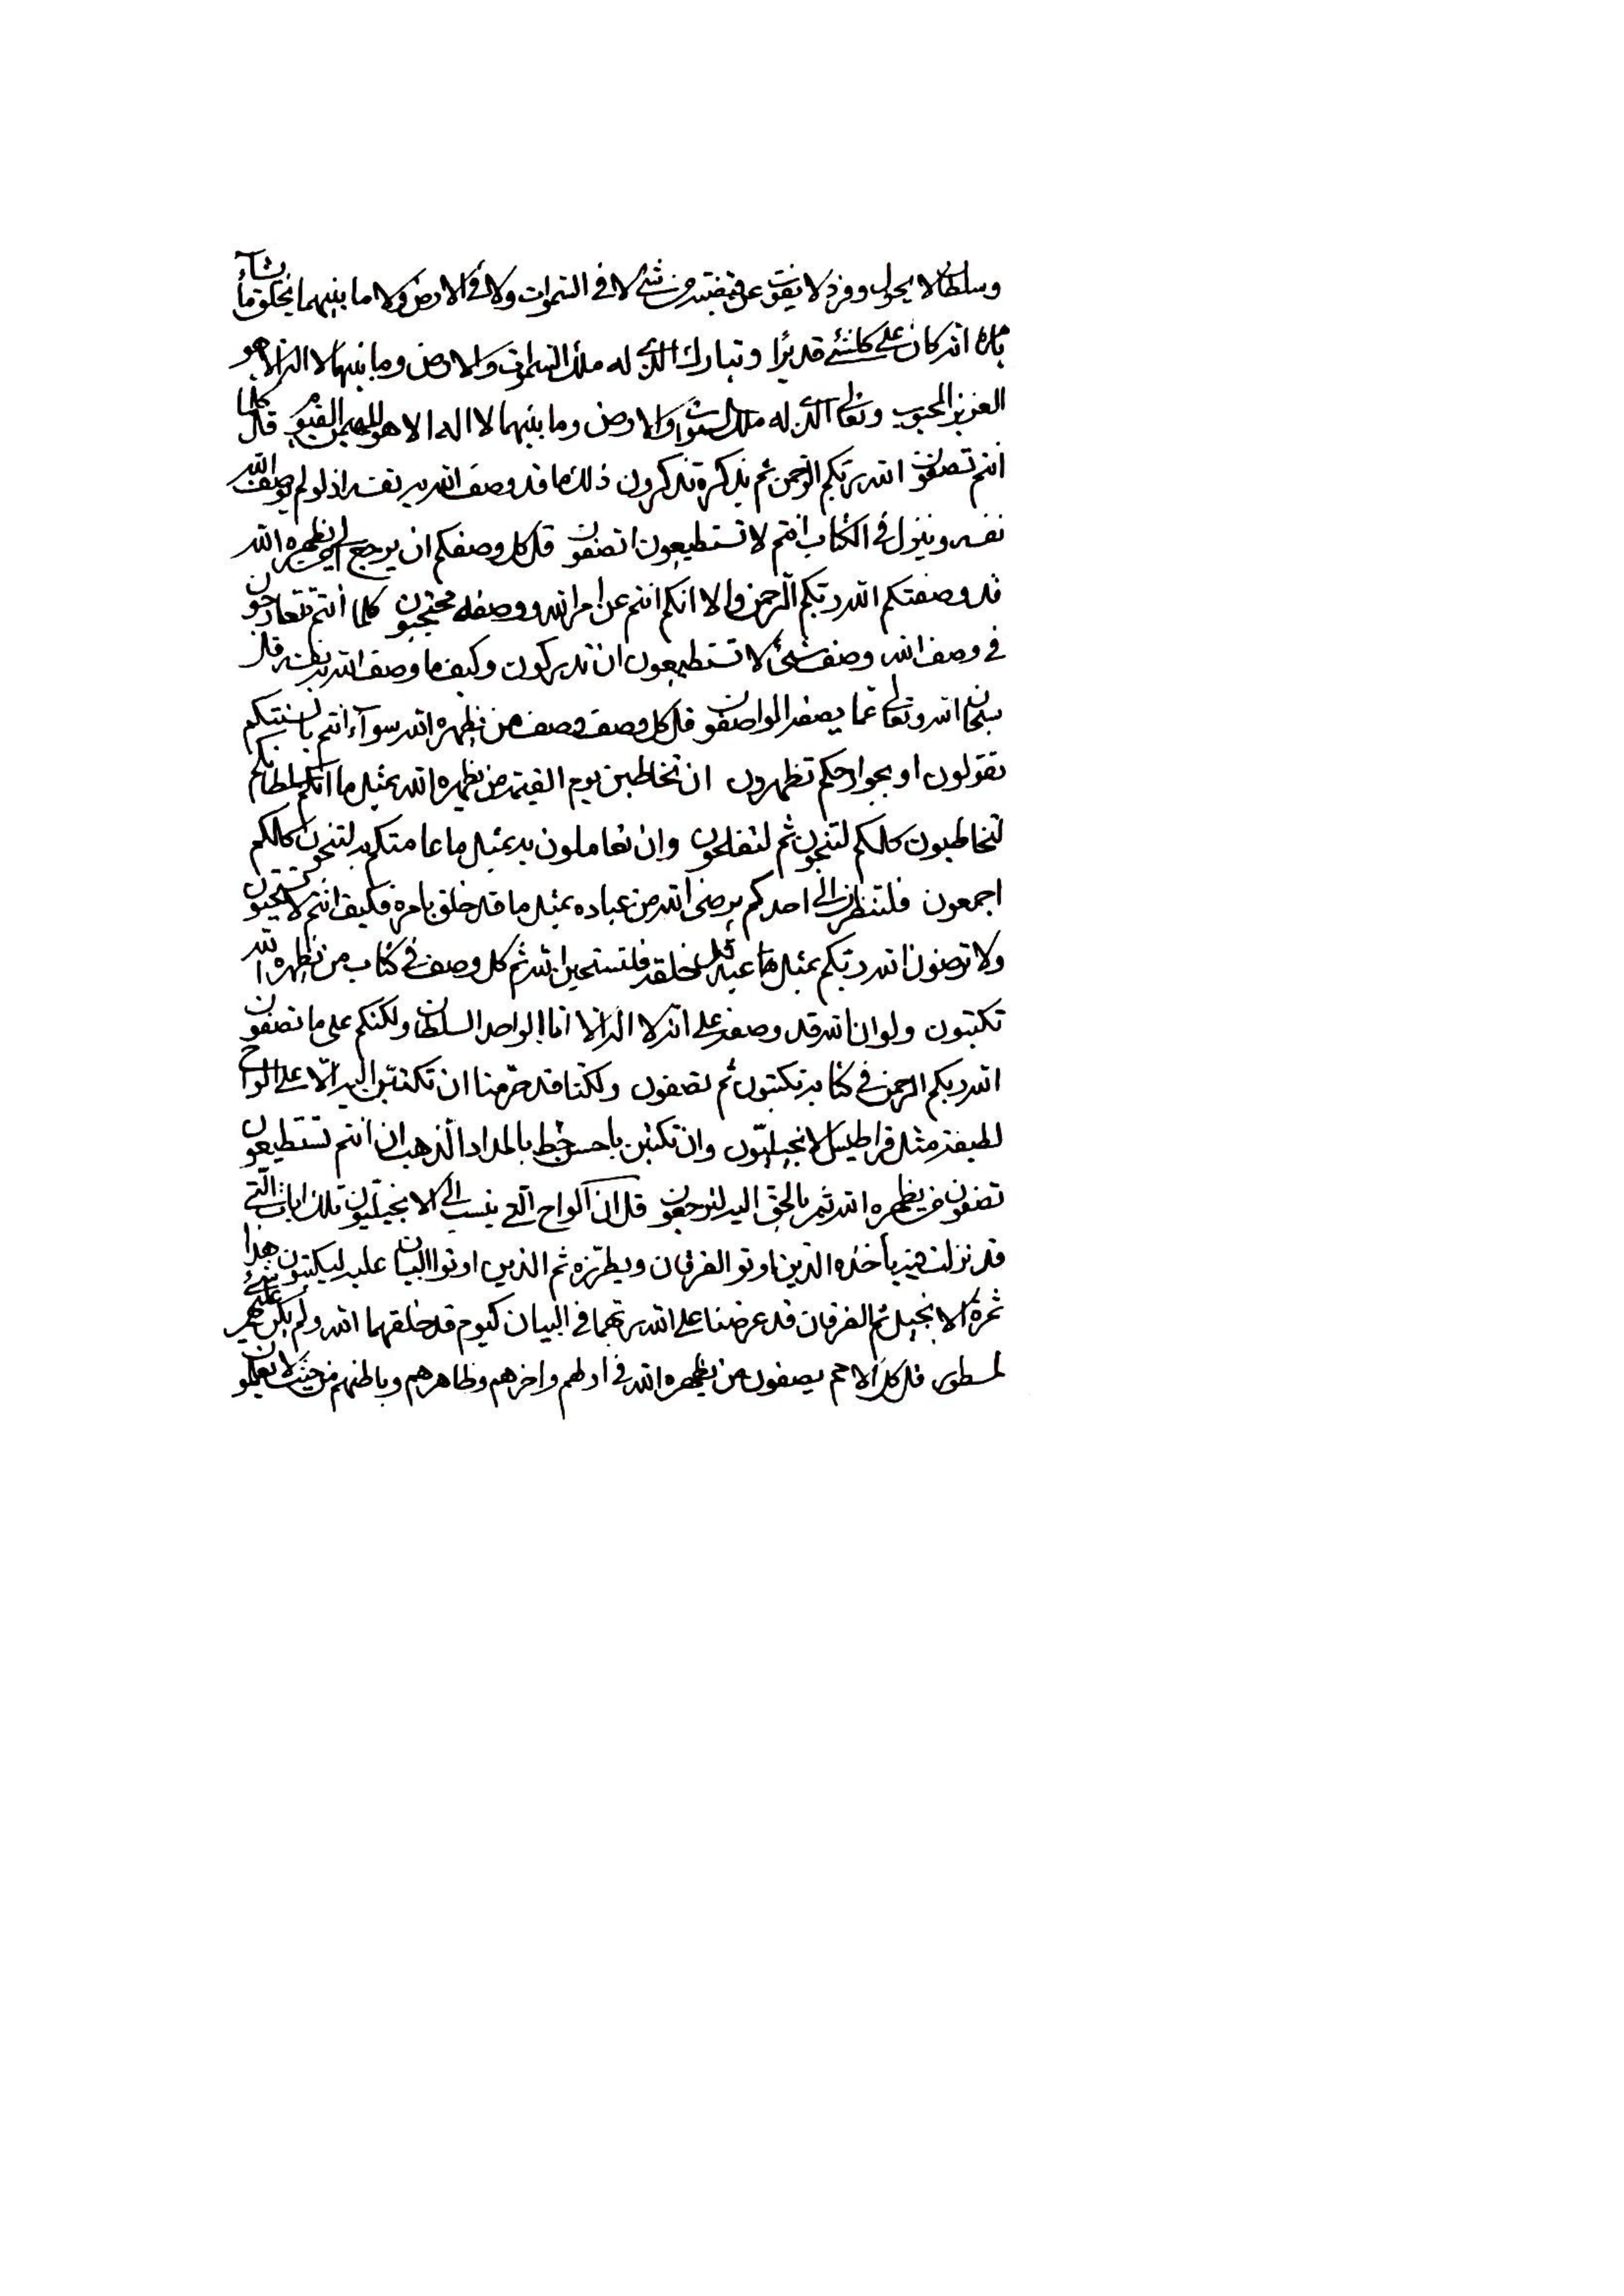 وسلطان لا يحول وفرد لا يفوت عن قبضته من شئ لا في السموات ولا في الارض ولا ما بينهما يخلق ما يشآء
بامره انه كان على كلشئ قديرًا وتبارك الذي له ملك السموات والارض وما بينهما لا اله الا هو
العزيز المحبوب وتعالى الذي له ملك السموات والارض وما بينهما لا اله الا هو المهيمن القيوم قل كلما
انتم تصفون الله ربكم الرحمن ثم بذكره تذكرون ذلك ما قد وصف الله به نفسه اذ لو لم يوصف الله
نفسه وينزل في الكتاب انتم لا تستطيعون ان تصفون قل كل وصفكم ان يرجع الى من يظهره الله
قد وصفتكم الله ربكم الرحمن والا انكم انتم عن امر الله ووصفه محتجبون كلما انتم تتعارجون
في وصف الله وصف شئ لا تستطيعون ان تدركون وكيف ما وصف الله به نفسه قل
سبحان الله وتعالى عما يصفه الواصفون قل كل وصف وصف من يظهره الله سوآء انتم بالسنتكم
تقولون او بجوارحكم تظهرون ان تخاطبن يوم القيمة من يظهره الله بمثل ما انكم
لتخاطبون كلكم لتنجون ثم لتفلحون وان تعاملون به بمثل ما عاملتكم به لتنجون كلكم
اجمعون فلتنظرن الى احدكم يرضى الله من عباده بمثل ما قد خلق بامره فكيف انتم لا تستحيون
ولا ترضون الله ربكم بمثل ما خلقه فلتستحين الله ثم كل وصف في كتاب من يظهره الله
تكتبون ولو ان الله قد وصفه على انه لا اله الا انا الواحد السلطان ولكنكم على ما تصفون
الله ربكم الرحمن في كتابه تكتبون ثم تصفون ولكنا قد حرمنا ان تكتبن اليه الّا على الواح
لطيفة مثل قراطيس الانجيليّون وان تكتبن باحسن خط بالمداد الذهب ان انتم تستطيعون
تصفون من يظهره الله ثم بالحق اليه لترجعون قل ان الواح التي ينسب الى الانجيليّون تلك ايات التي
قد نزلت فيه يأخذه الذين اوتو الفرقان ويطرّزه ثم الذين اوتوا البيان عليه ليكتبون هذا
ثمرة الانجيل ثم الفرقان قد عرضنا على الله ربهما في البيان كيوم قد خلقهما الله ولم يكن عليهم شئ
لمسطور قل كل الامم يصفون من يظهره الله في اولهم واخرهم وظاهرهم وباطنهم من حيث لا يعلمون